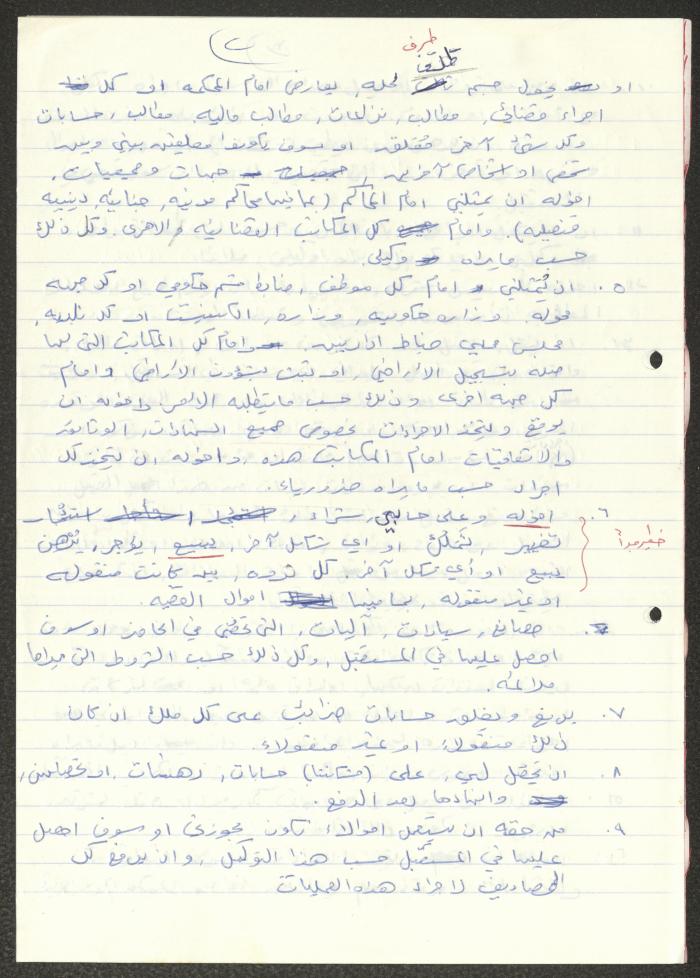 (٢)
طرف
طلقف
او يخول جسم لحله, يعارض امام المحكمه او كل
اجراء قضائي, مطالب, نزاعات, مطالب ماليه, مطالب, حسابات
وكل شئ آخر متعلق او سوف يكون متعلقه بيني وبين
شخص او اشخاص آخرين, جهات وجمعيات,
اخوله ان يمثلني امام المحاكم (بما فيها محاكم مدنيه, جنائيه, دينييه
قنصليه), وامام كل المكاتب القضائيه والاخرى وكل ذلك
حسب مايراه وكيلي
٥. ان يُمثلني امام كل موظف, ضابط قسم حكومي او كل جهه
دوله, وزاره حكوميه, وزاره, الكنيست او كل بلديه,
مجلس محلي ضباط اداريين, وامام كل المكاتب التي لها
صله بتسجيل الاراضي, او تبت بشؤون الاراضي وامام
كل جهه اخرى وذلك حسب مايتطلبه الامر واخوله ان
يوقع وليتخذ الاجراءات بخصوص جميع السندات, الوثائق
والاتفاقيات امام المكاتب هذه, واخوله ان ليتخذ كل
اجراء حسب مايراه ضروريا.
٦. اخوله وعلى حسابي, شراء, استئجار
تغيير, تملك او اي شكل آخر, يبيع, يؤجر, يرهن
يبيع او أي شكل آخر. كل ثروه, بين كانت منقوله
او غير منقوله, بما فيها اموال القضيه.
خطير جداً
مصانع, سيارات, آليات, التي تخصني في الحاضر او سوف
احصل عليها في المستقبل, وكل ذلك حسب الشروط التي يراها
ملائمه.
٧. يدفع ويغلق حسابات ضرائب على كل ملك ان كان
ذلك منقولاً او غير منقولاً.
٨. ان يحصّل لي, على (مشكنتا) حسابات, رهنيات, او تحصيلهن,
وابعادها بعد الدفع.
٩. من حقه ان يستعمل اموالاً تكون بحوزتي او سوف احصل
عليها في المستقبل حسب هذا التوكيل, وان يدفع كل
المصاريف لاجراء هذه العمليات